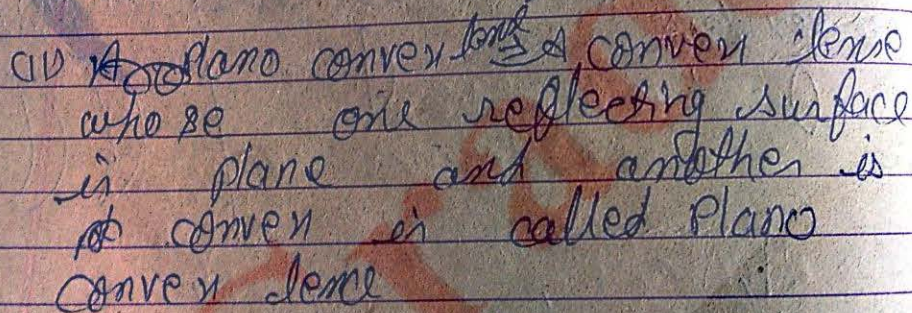 (ii) Plano convex lens = A convex lense
whose one reflecting surface
is plane and another is
convex is called Plano
convex lence